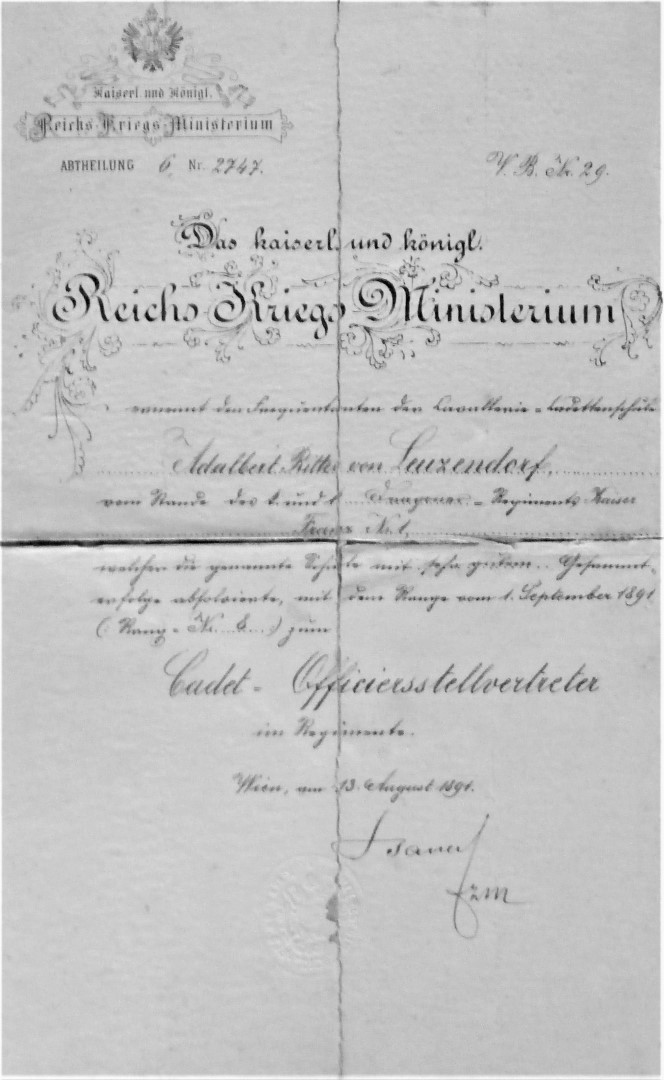 Kaiserl. und Königl.
Reichs-Kriegs-Ministerium
ABTHEILUNG 6, Nr. 2747.
V. B. Nr. 29.
Das kaiserl. und königl.
Reichs-Kriegs-Ministerium
ernennt den Frequentanten der Cavallerie-Cadettenschule
Adalbert Ritter von Leuzendorf,
vom Stande des k. und k. Dragoner-Regiments Kaiser
Franz No. 1,
welcher die genannte Schule mit sehr gutem Gesammt-
erfolge absolvierte, mit dem Range vom 1. September 1891
(: Rang-Nr. :) zum
Cadet-Officiersstellvertreter
im Regimente.
Wien, am 13. August 1891.
FZM